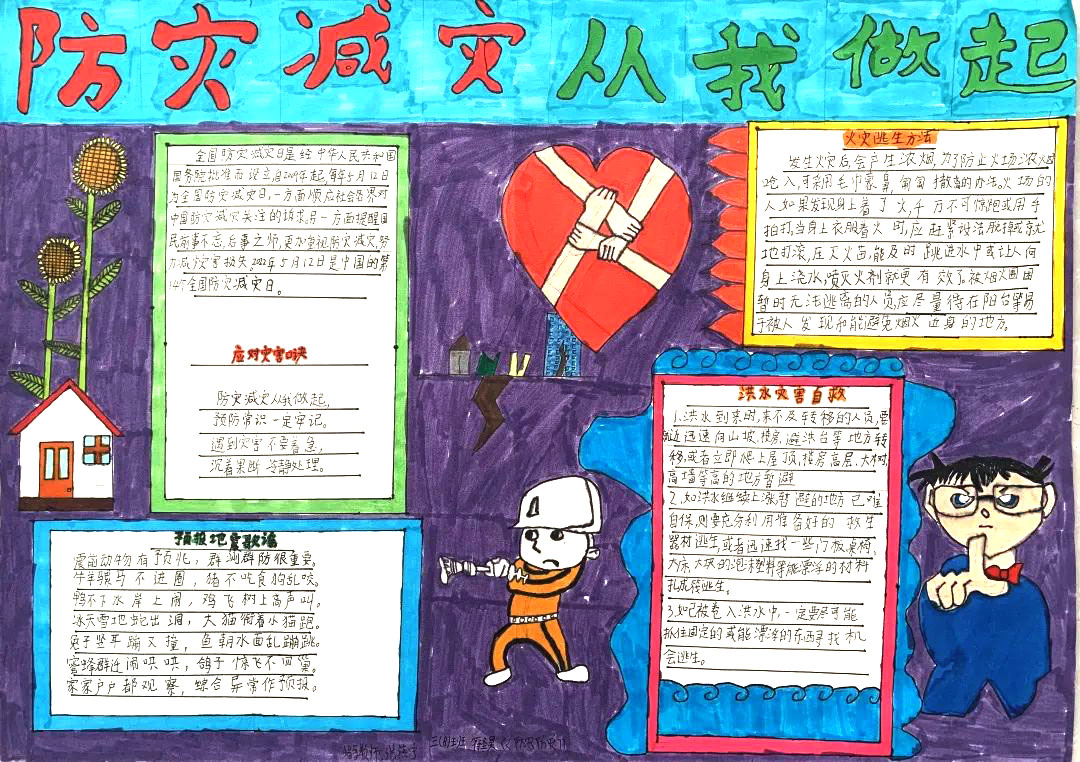 防灾减灾从我做起
全国防灾减灾日是经中华人民共和国
国务院批准而设立自2009年起,每年5月12日
为全国防灾减灾日,一方面顺应社会各界对
中国防灾减灾关注的诉求,另一方面提醒国
民前事不忘,后事之师,更加重视防灾减灾,努
力减少灾害损失。2022年5月12日是中国的第
14个全国防灾减灾日。
应对灾害口诀
防灾减灾从我做起,
预防常识一定牢记。
遇到灾害不要着急,
沉着果断冷静处理。
预报地震歌谣
震前动物有预兆,群测群防很重要,
牛羊骡马不进圈,猪不吃食狗乱咬。
鸭不下水岸上闹,鸡飞树上高声叫。
冰天雪地蛇出洞,大猫衔着小猫跑。
兔子竖耳蹦又撞,鱼朝水面乱蹦跳。
蜜蜂群迁闹哄哄,鸽子惊飞不回巢。
家家户户都观察,综合异常作预报。
火灾逃生方法
发生火灾后会产生浓烟,为了防止火场浓烟
呛入,可采用毛巾蒙鼻,匍匐撤离的办法。火场的
人如果发现身上着了火,千万不可惊跑或用手
拍打,当身上衣服着火时,应赶紧设法脱掉或就
地打滚,压灭火苗,能及时跳进水中或让人向
身上浇水,喷灭火剂就更有效了。被烟火围困
暂时无法逃离的人员应尽量待在阳台等易
于被人发现和能避免烟火近身的地方。
洪水灾害自救
1.洪水到来时,来不及转移的人员,要
就近迅速向山坡,楼房,避洪台等地方转
移,或者立即爬上屋顶,楼房高层,大树,
高墙等高的地方暂避
2.如洪水继续上涨暂避的地方已难
自保,则要充分利用准备好的救生
器材逃生,或者迅速找一些门板桌椅、
大床大块的泡沫塑料等能漂浮的材料
扎成筏逃生。
3.如已被卷入洪水中,一定要尽可能
抓住固定的或能漂浮的东西寻找机
会逃生。